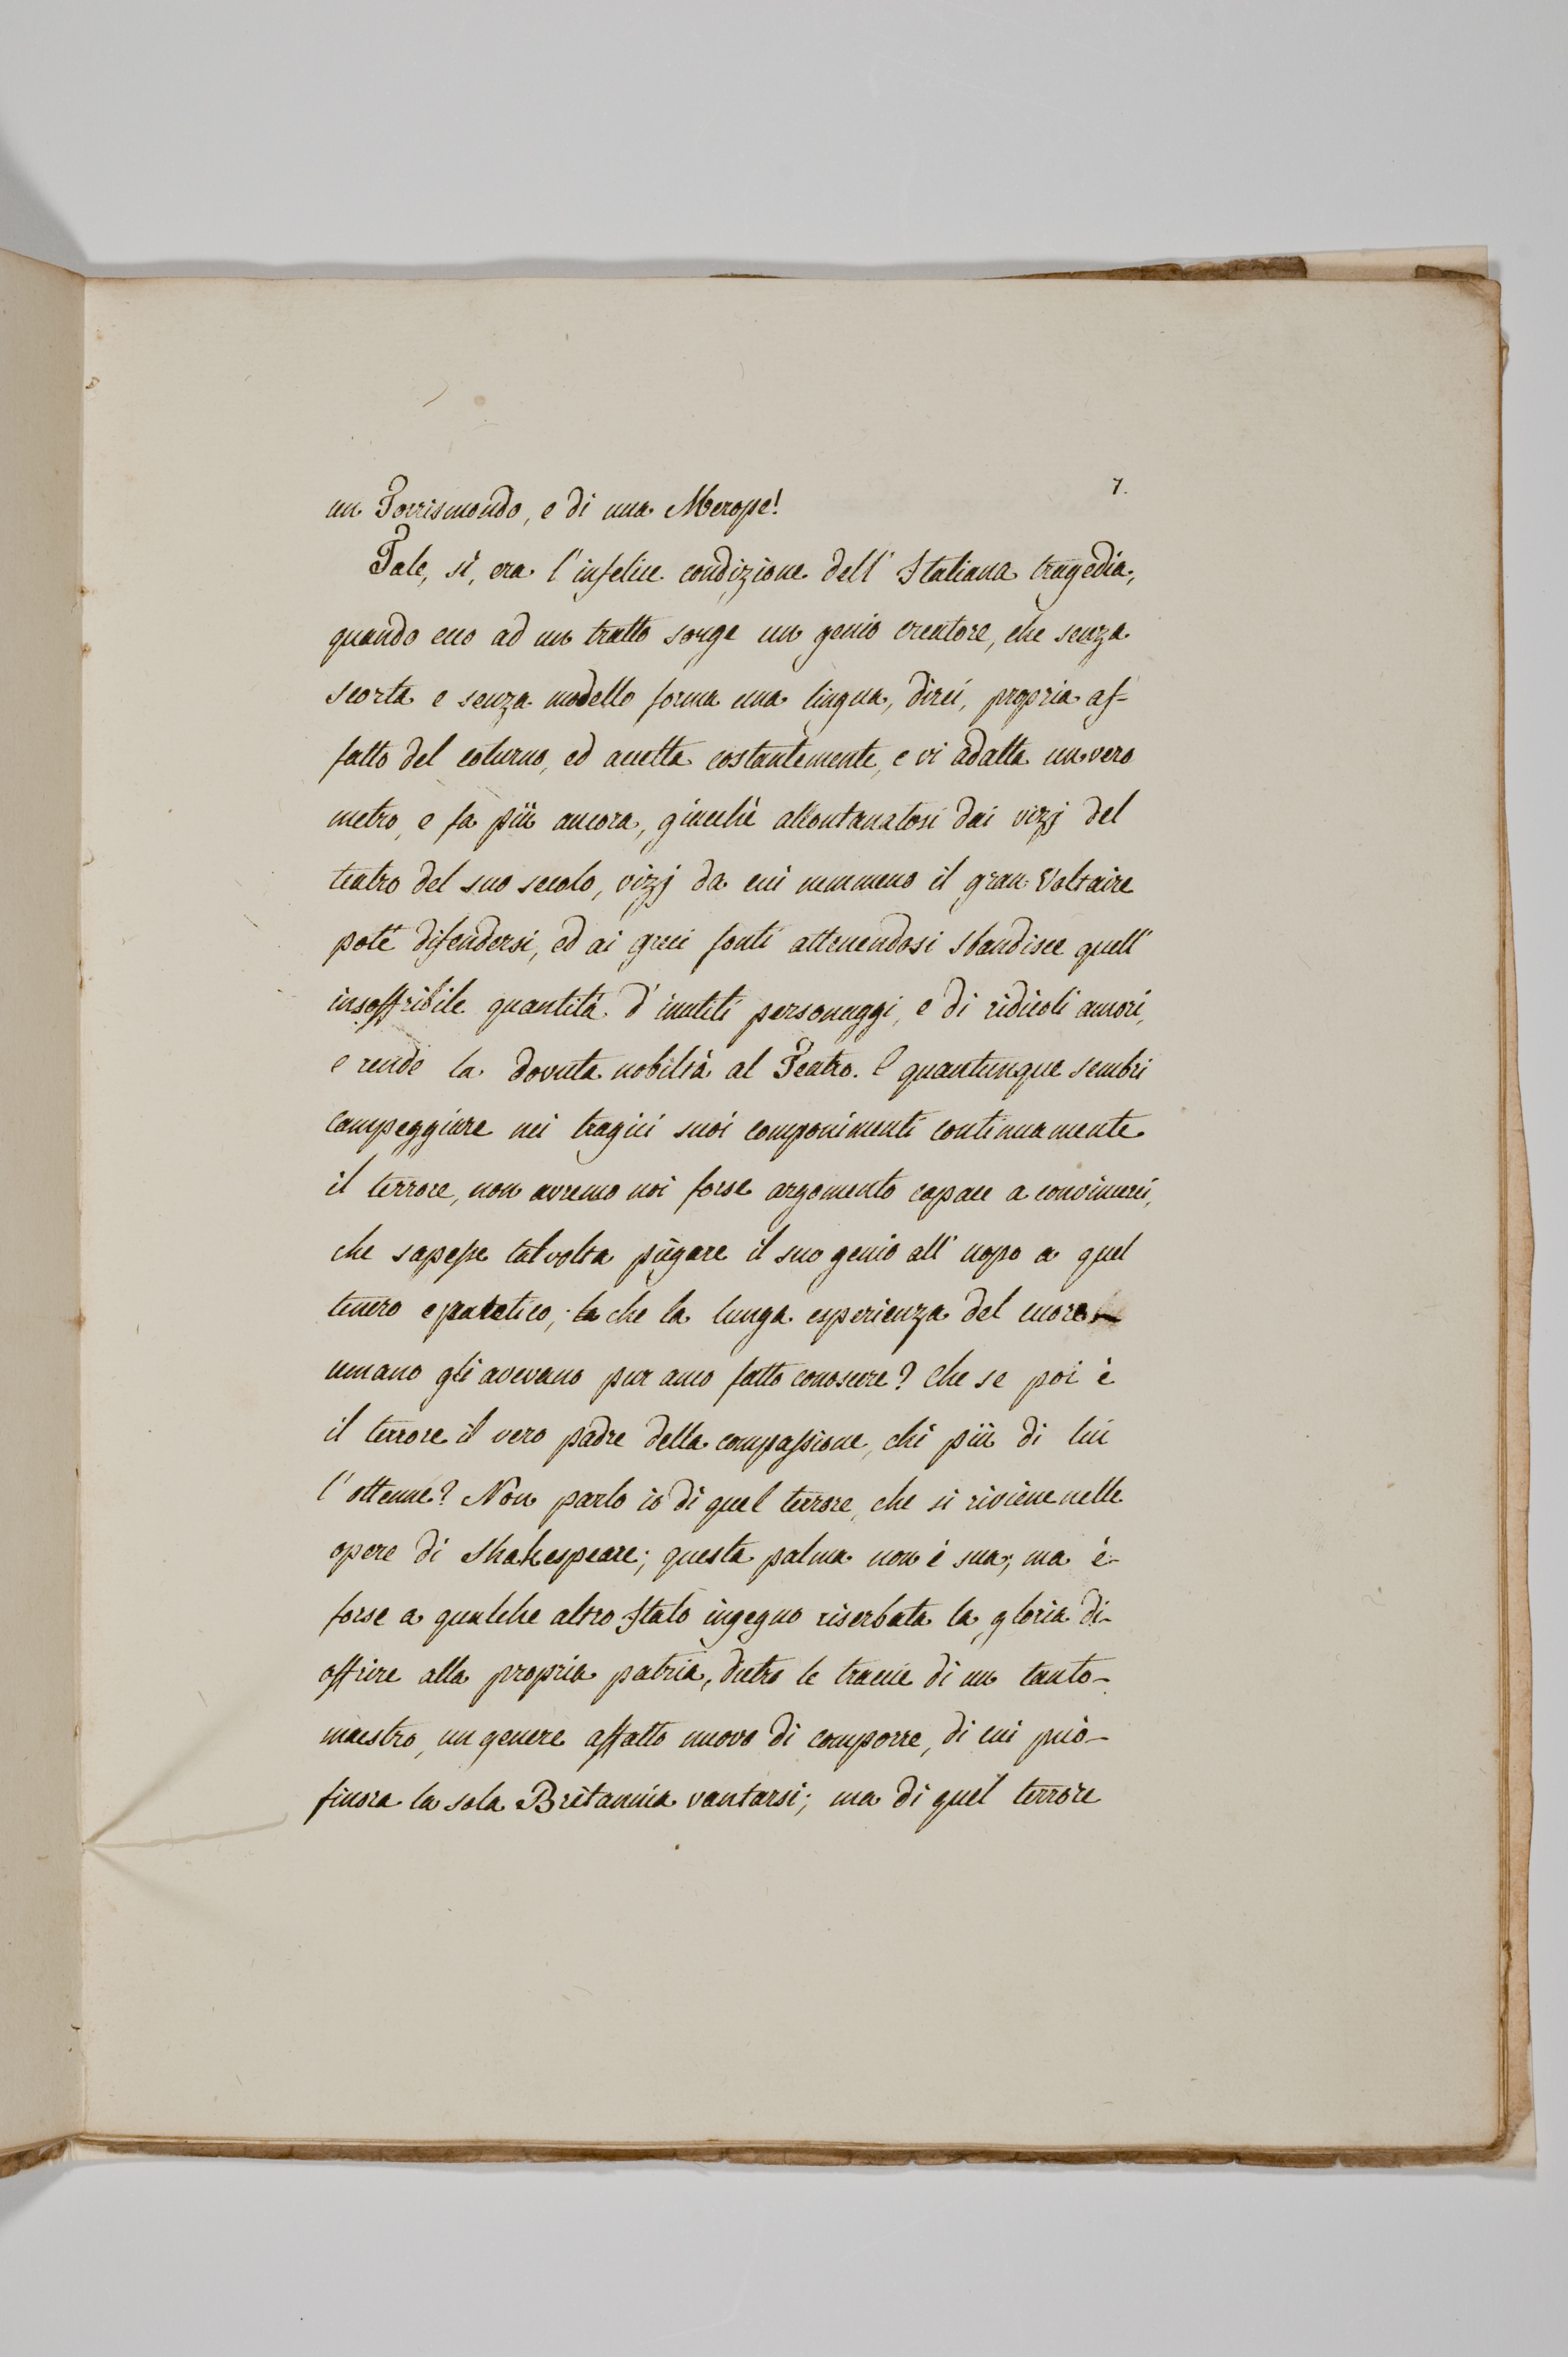 7.
un Torrismondo, e di una Merope!
Tale, sì, era l'infelice condizione dell'Italiana tragedia,
quando ecco ad un tratto sorge un genio creatore, che senza
scorta e senza modello forma una lingua, direi, propria af-
fatto del coturno, ed accetta costantemente, e vi adatta un vero
metro, e fa più ancora, giacchè allontanatosi dai vizj del
teatro del suo secolo, vizj da cui nemmeno il gran Voltaire
potè difendersi, ed ai greci fonti attenendosi sbandisce quell'
insoffribile quantità d'inutili personaggi, e di ridicoli amori,
e rende la dovuta nobiltà al Teatro. E quantunque sembri
campeggiare nei tragici suoi componimenti continuamente
il terrore, non avremo noi forse argomento capace a convincerci,
che sapesse talvolta piegare il suo genio all'uopo a quel
tenero e patetico, che la lunga esperienza del cuore
umano gli avevano pur anco fatto conoscere? Che se poi è
il terrore il vero padre della compassione, chi più di lui
l'ottenne? Non parlo io di quel terrore, che si rinviene nelle
opere di Shakespeare; questa palma non è sua, ma è
forse a qualche altro Italo ingegno riserbata la gloria di
offrire alla propria patria, dietro le traccie di un tanto
maestro, un genere affatto nuovo di comporre, di cui può
finora la sola Britannia vantarsi; ma di quel terrore